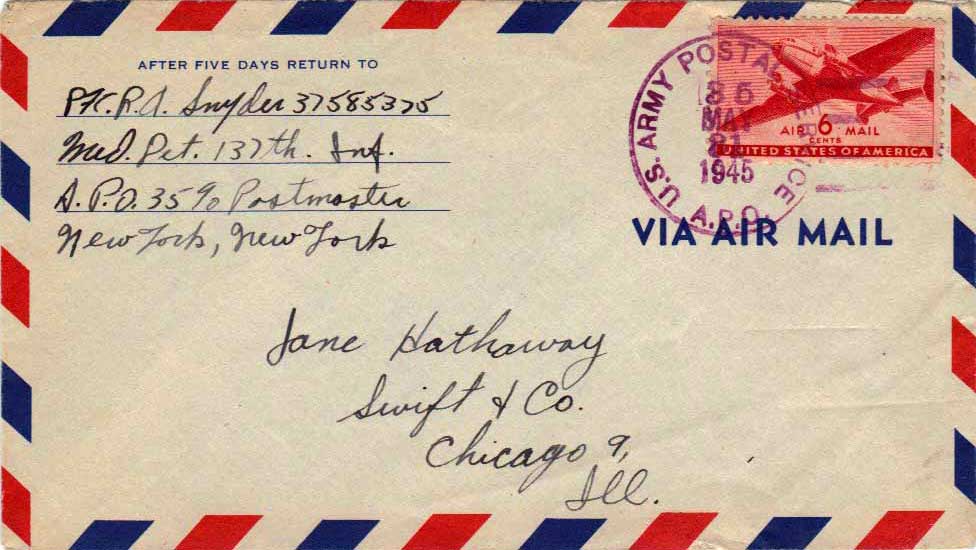 AFTER FIVE DAYS RETURN TO
Pfc. R. A. Snyder 37585375
Med. Det. 137th. Inf.
A.P.O. 35 % Postmaster
New York, New York
U.S. ARMY POSTAL SERVICE
A.P.O.
MAY
21
1945
AIR 6 MAIL
CENTS
UNITED STATES OF AMERICA
VIA AIR MAIL
Jane Hathaway
Swift & Co.
Chicago 9,
Ill.